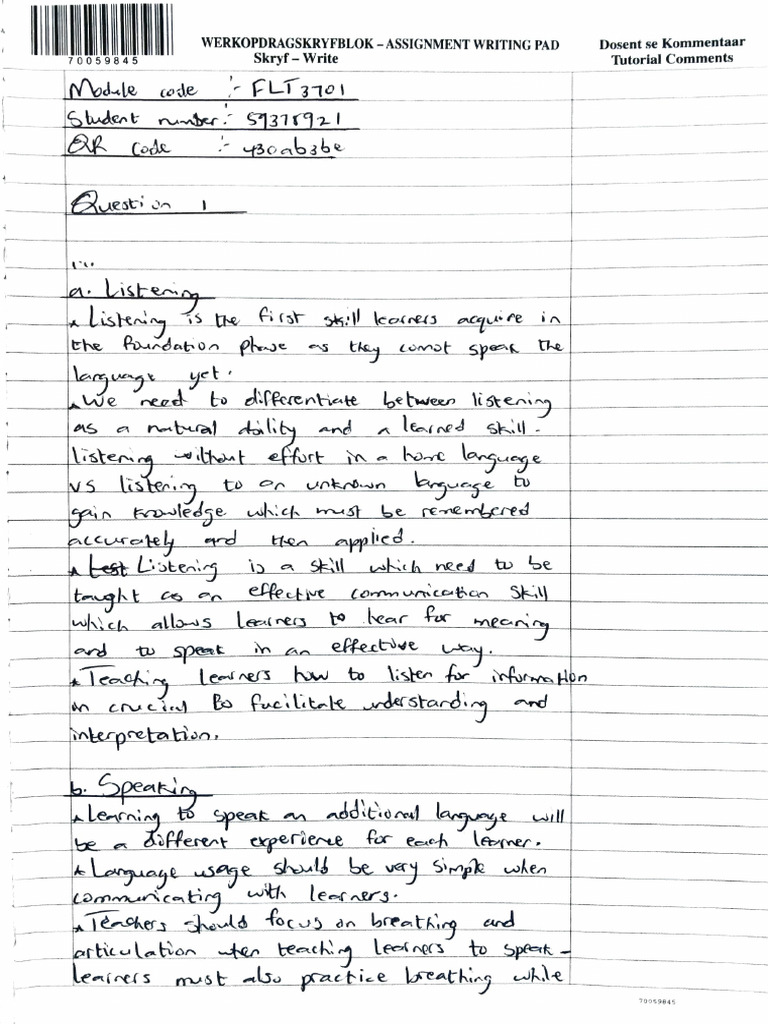 70059845
WERKOPDRAGSKRYFBLOK – ASSIGNMENT WRITING PAD
Skryf – Write
Dosent se Kommentaar
Tutorial Comments
Module code :- FLT3701
Student number:- 59378921
QR code :- 430ab3be
Question 1
...
a. Listening
* Listening is the first skill learners acquire in
the foundation phase as they cannot speak the
language yet.
* We need to differentiate between listening
as a natural ability and a learned skill.
listening without effort in a home language
vs listening to an unknown language to
gain knowledge which must be remembered
accurately and then applied.
* Listening is a skill which need to be
taught as an effective communication skill
which allows learners to hear for meaning
and to speak in an effective way.
* Teaching learners how to listen for information
in crucial to facilitate understanding and
interpretation.
b. Speaking
* Learning to speak an additional language will
be a different experience for each learner.
* Language usage should be very simple when
communicating with learners.
* Teachers should focus on breathing and
articulation when teaching learners to speak -
learners must also practice breathing while
70059845